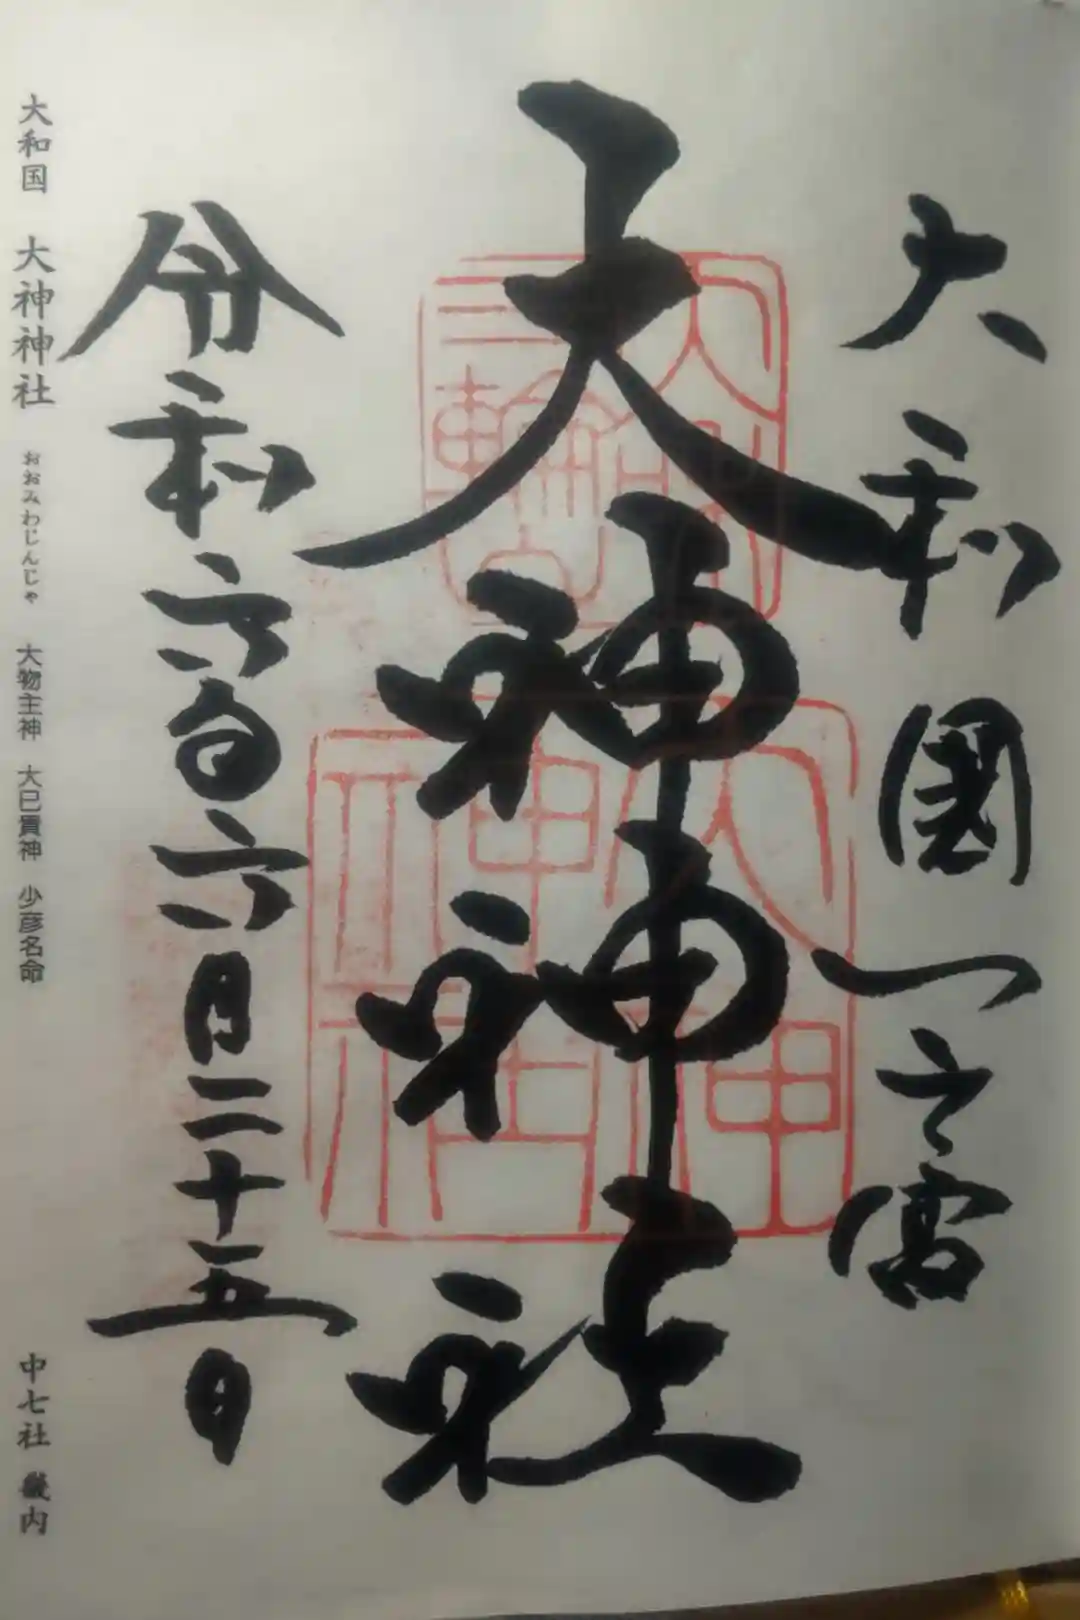 大和國一之宮
大神神社
令和六年六月二十五日
大神神社
三輪
大和国 大神神社 おおみわじんじゃ 大物主神 大己貴神 少彦名命
中七社 畿内